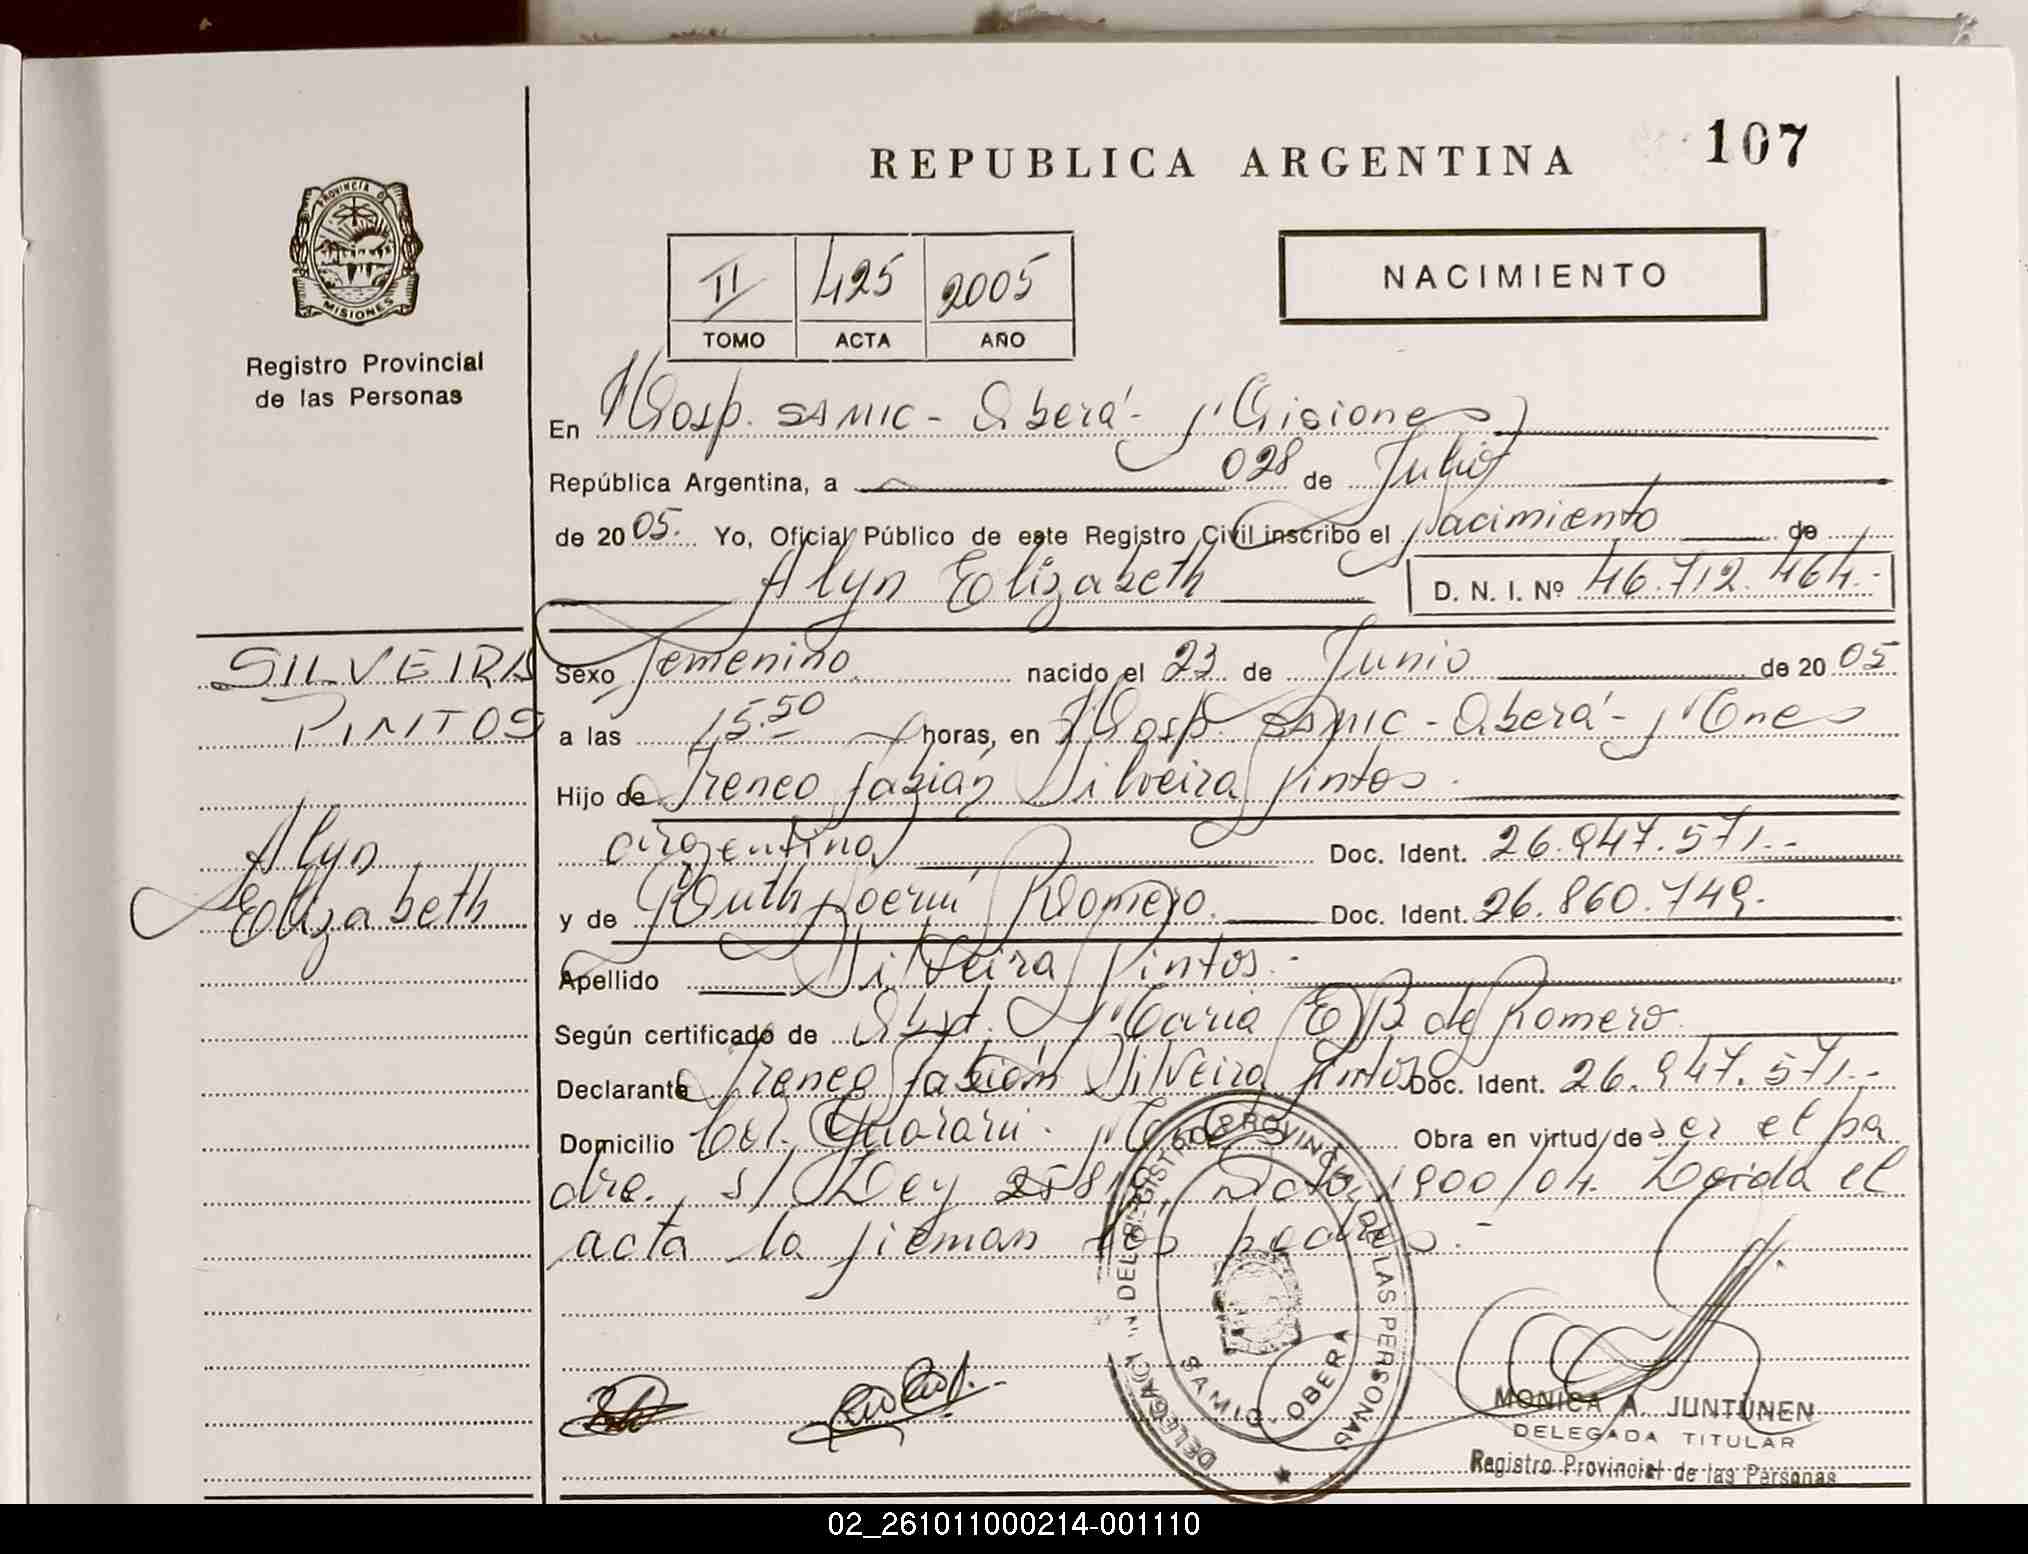 107
REPUBLICA ARGENTINA
PROVINCIA D
MISIONES
Registro Provincial
de las Personas
II 425 2005
TOMO ACTA AÑO
NACIMIENTO
En Hosp. SAMIC - Oberá - Misiones
República Argentina, a 028 de Julio
de 2005. Yo, Oficial Público de este Registro Civil inscribo el nacimiento de
Alyn Elizabeth D. N. I. Nº 46.712.464.-
SILVEIRA
PINTOS
Alyn
Elizabeth
Sexo femenino nacido el 23 de Junio de 2005
a las 15.50 horas, en Hosp. SAMIC - Oberá - Mnes
Hijo de Ireneo Fabián Silveira Pintos.
argentina Doc. Ident. 26.947.571.-
y de Ruth Noemí Romero. Doc. Ident. 26.860.749.-
Apellido Silveira Pintos.-
Según certificado de Obst. María E B de Romero.
Declarante Ireneo Fabián Silveira Pintos Doc. Ident. 26.947.571.-
Domicilio Col. Guaraní. Obra en virtud de ser el pa
dre. s/ Ley Dcto. 1900/04. Leída el
acta la firman los padres.-
DELEGACION DEL REGISTRO PROVINCIAL DE LAS PERSONAS
SAMIC - OBERA
MONICA A. JUNTUNEN
DELEGADA TITULAR
Registro Provincial de las Personas
02_261011000214-001110